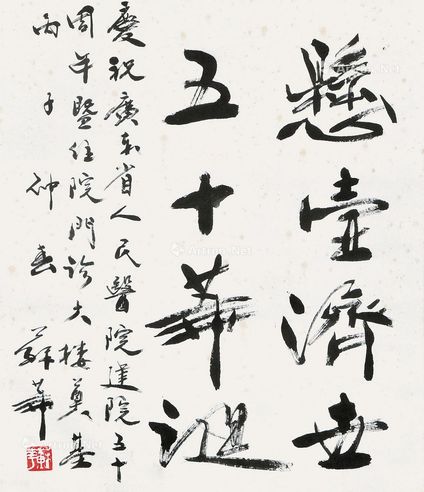 懸壺濟世
五十華誕
慶祝廣東省人民醫院建院五十
周年暨住院門診大樓奠基
丙子仲春 蘇華